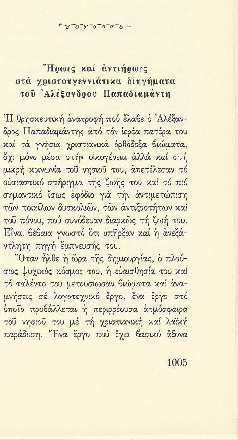 Ἥρωες καὶ ἀντιήρωες
στὰ χριστουγεννιάτικα διηγήματα
τοῦ Ἀλέξανδρου Παπαδιαμάντη
Ἡ θρησκευτικὴ ἀνατροφὴ ποὺ ἔλαβε ὁ Ἀλέξαν-
δρος Παπαδιαμάντης ἀπὸ τὸν ἱερέα πατέρα του
καὶ τὰ γνήσια χριστιανικὰ ὀρθόδοξα βιώματα,
ὄχι μόνο μέσα στὴν οἰκογένεια ἀλλὰ καὶ στὴ
μικρὴ κοινωνία τοῦ νησιοῦ του, ἀπετέλεσαν τὸ
οὐσιαστικὸ στήριγμα τῆς ζωῆς του καὶ τὸ πιὸ
σημαντικὸ ἴσως ἐφόδιο γιὰ τὴν ἀντιμετώπιση
τῶν ποικίλων δυσκολιῶν, τῶν ἀντιξοοτήτων καὶ
τοῦ πόνου, ποὺ συνόδευαν διαρκῶς τὴ ζωή του.
Εἶναι βέβαια γνωστὸ ὅτι ὑπῆρξαν καὶ ἡ ἀνεξά-
ντλητη πηγὴ ἔμπνευσής του.
Ὅταν ἦλθε ἡ ὥρα τῆς δημιουργίας, ὁ πλού-
σιος ψυχικὸς κόσμος του, ἡ εὐαισθησία του καὶ
τὸ ταλέντο του μετουσίωσαν βιώματα καὶ ἀνα-
μνήσεις σὲ λογοτεχνικὸ ἔργο, ἕνα ἔργο στὸ
ὁποῖο προβάλλεται ἡ περιρρέουσα ἀτμόσφαιρα
τοῦ νησιοῦ του μὲ τὴ χριστιανικὴ καὶ λαϊκὴ
παράδοση. Ἕνα ἔργο ποὺ ἔχει βασικὸ ἄξονα
1005